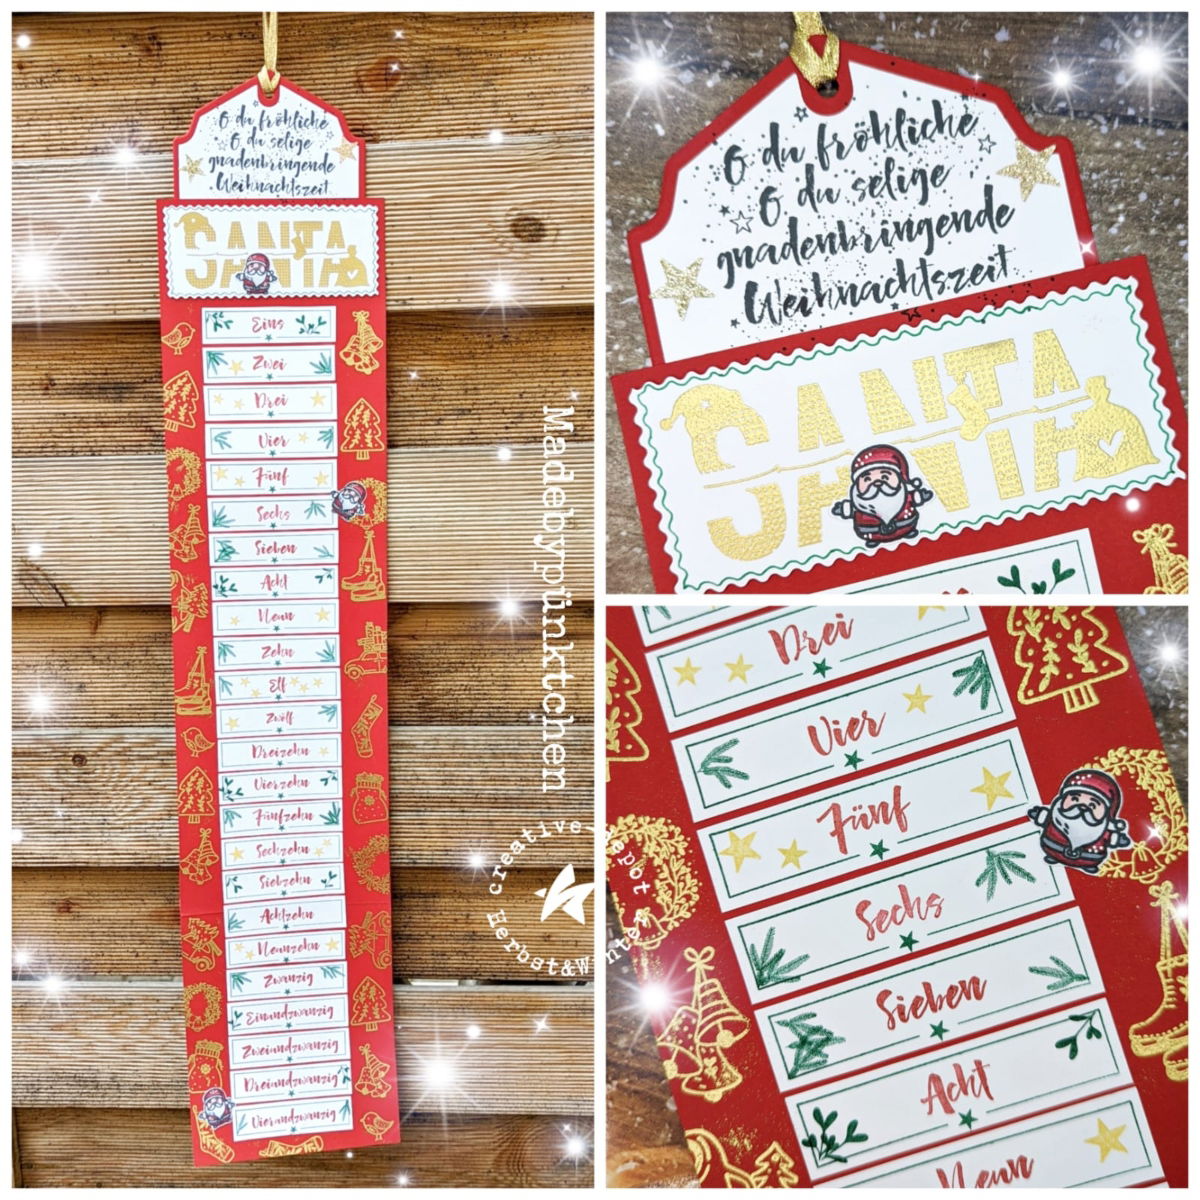 O du fröhliche
O du selige
gnadenbringende
Weihnachtszeit
SANTA
Eins
Zwei
Drei
Vier
Fünf
Sechs
Sieben
Acht
Neun
Zehn
Elf
Zwölf
Dreizehn
Vierzehn
Fünfzehn
Sechzehn
Siebzehn
Achtzehn
Neunzehn
Zwanzig
Einundzwanzig
Zweiundzwanzig
Dreiundzwanzig
Vierundzwanzig
Madebypünktchen
creative depot
Herbst&Winter
O du fröhliche
O du selige
gnadenbringende
Weihnachtszeit
SANTA
Drei
Vier
Fünf
Sechs
Sieben
Acht
Neun